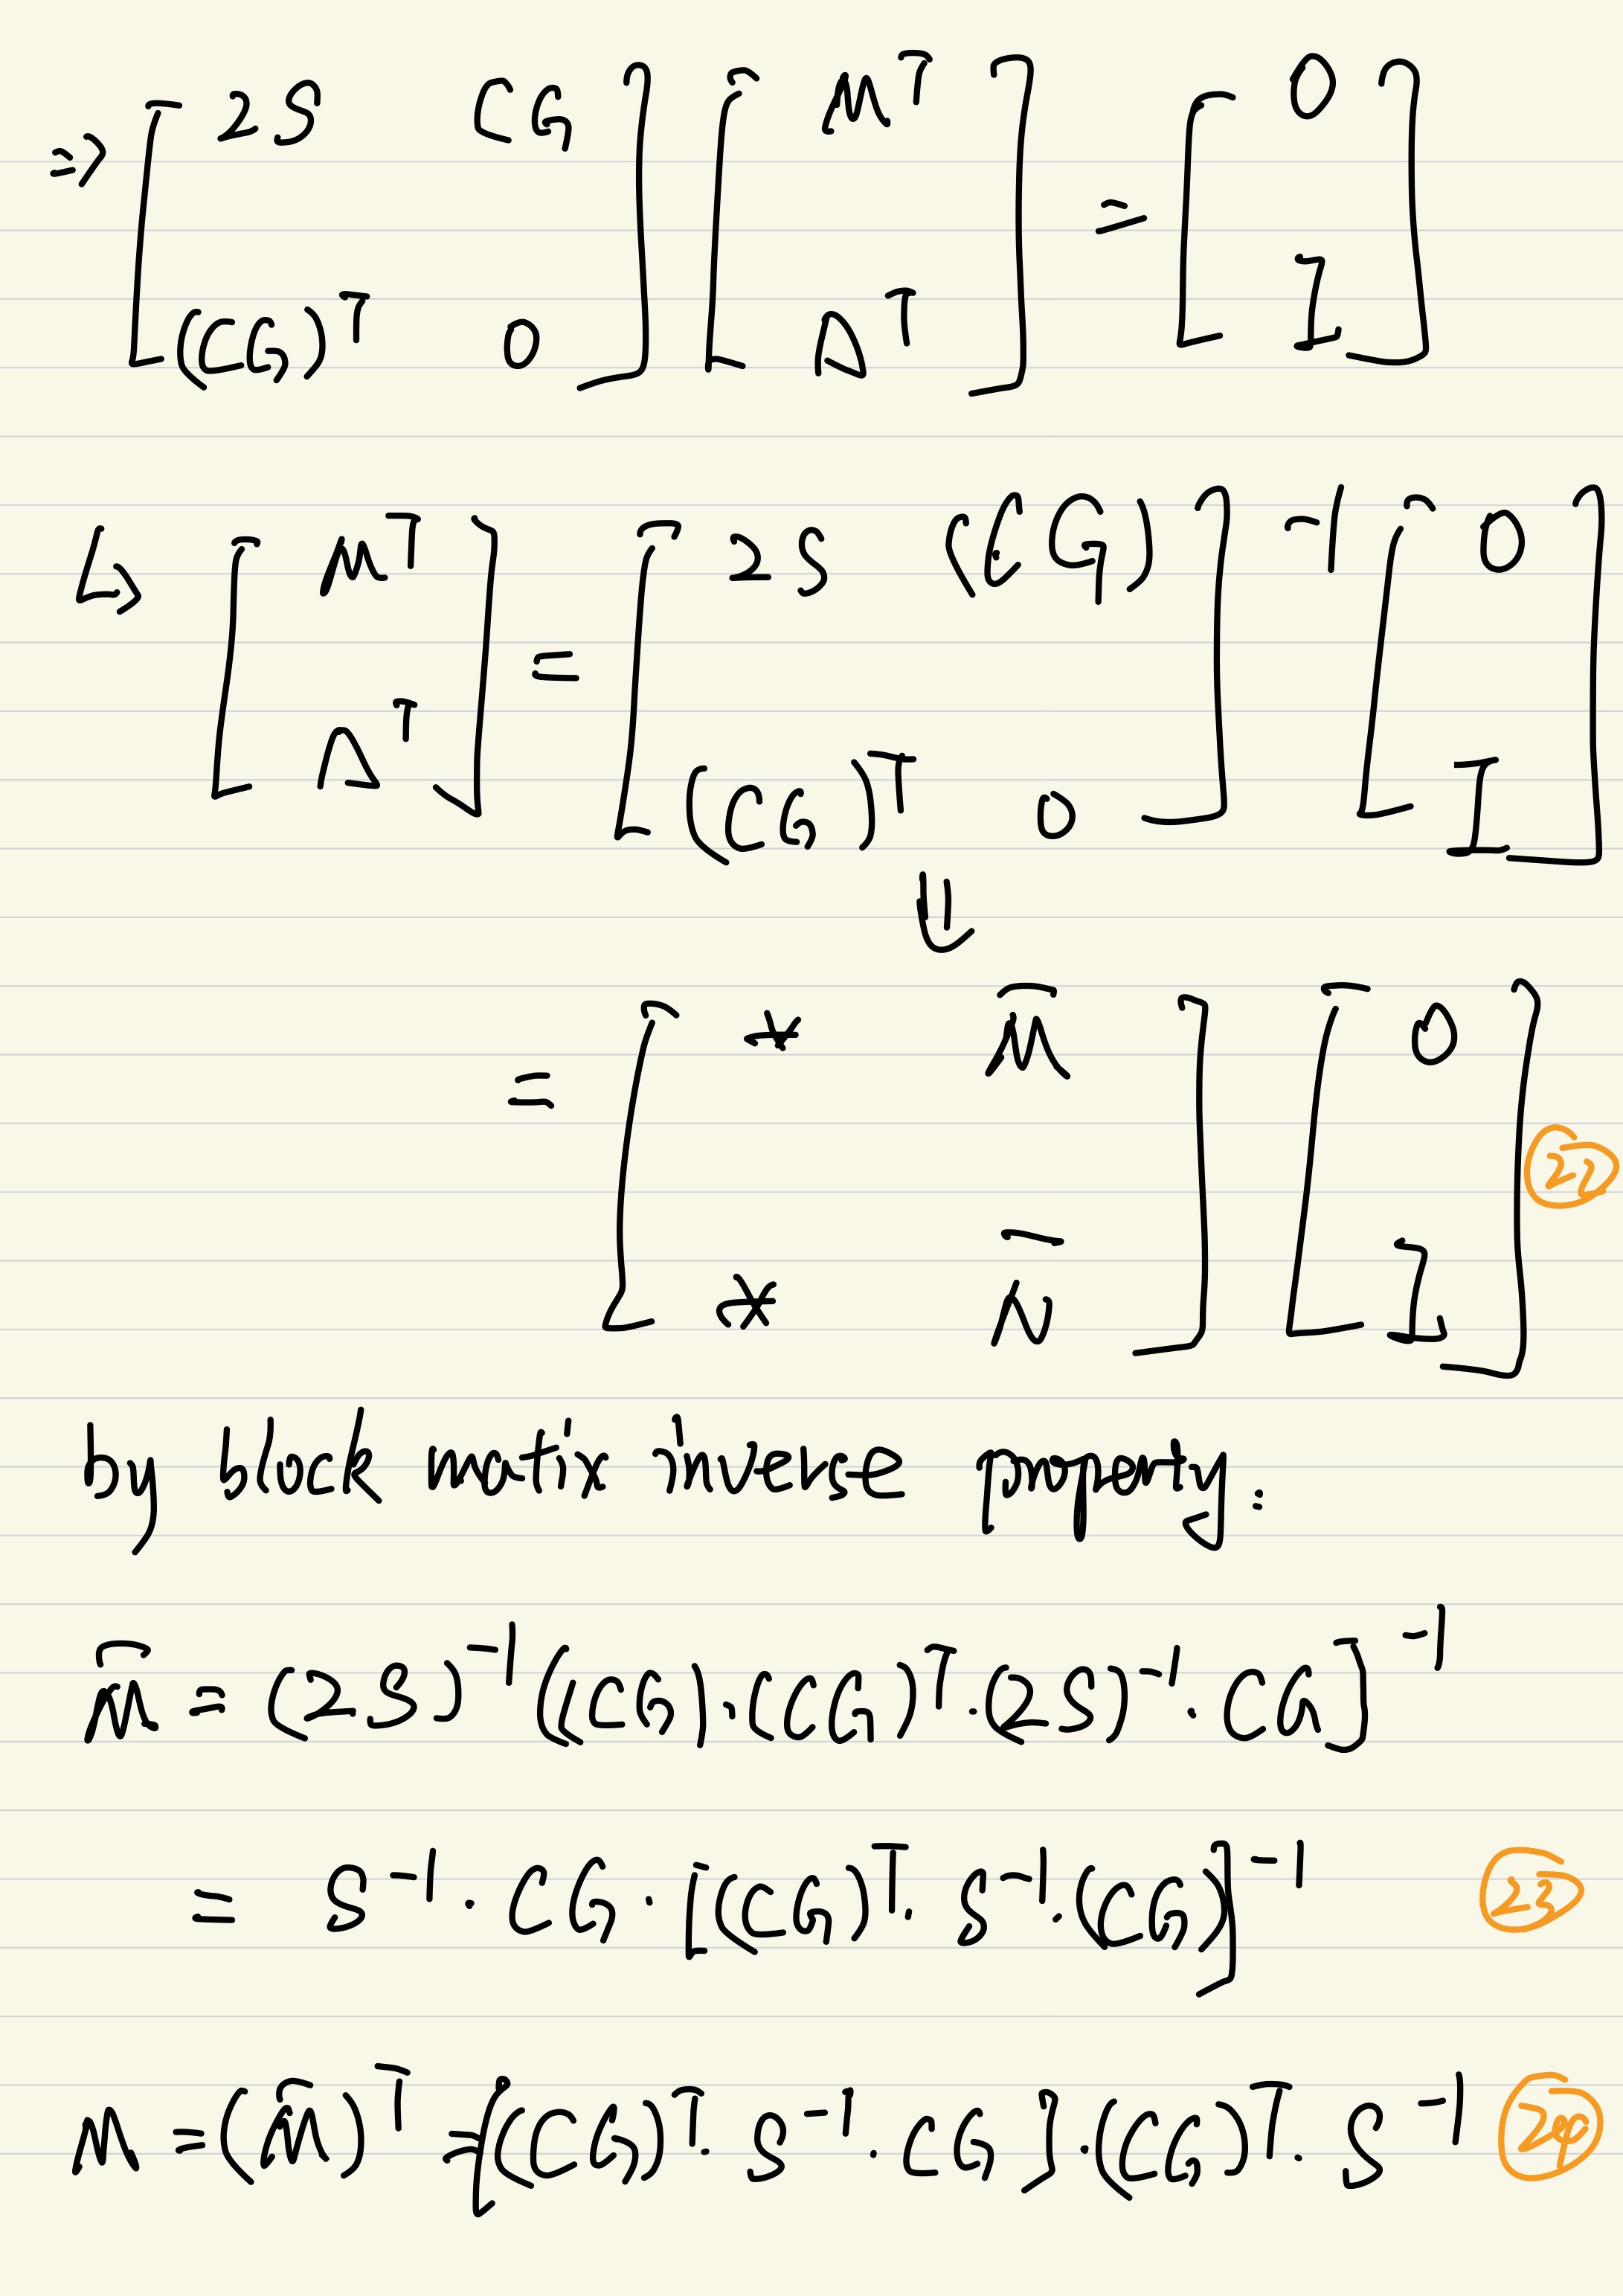 ⇒ [ 2S CG ; (CG)^T 0 ] [ M^T ; Λ^T ] = [ 0 ; I ]
↳ [ M^T ; Λ^T ] = [ 2S (CG) ; (CG)^T 0 ]^-1 [ 0 ; I ]
⇓
= [ * M̄ ; * N̄ ] [ 0 ; I ] 22
by block matrix inverse property:
M̄ = (2S)^-1 ((CG)·(CG)^T·(2S)^-1·CG]^-1
= S^-1·CG·[(CG)^T·S^-1·(CG)]^-1 23
M = (M̄)^T = {(CG)^T·S^-1·CG}·(CG)^T·S^-1 24